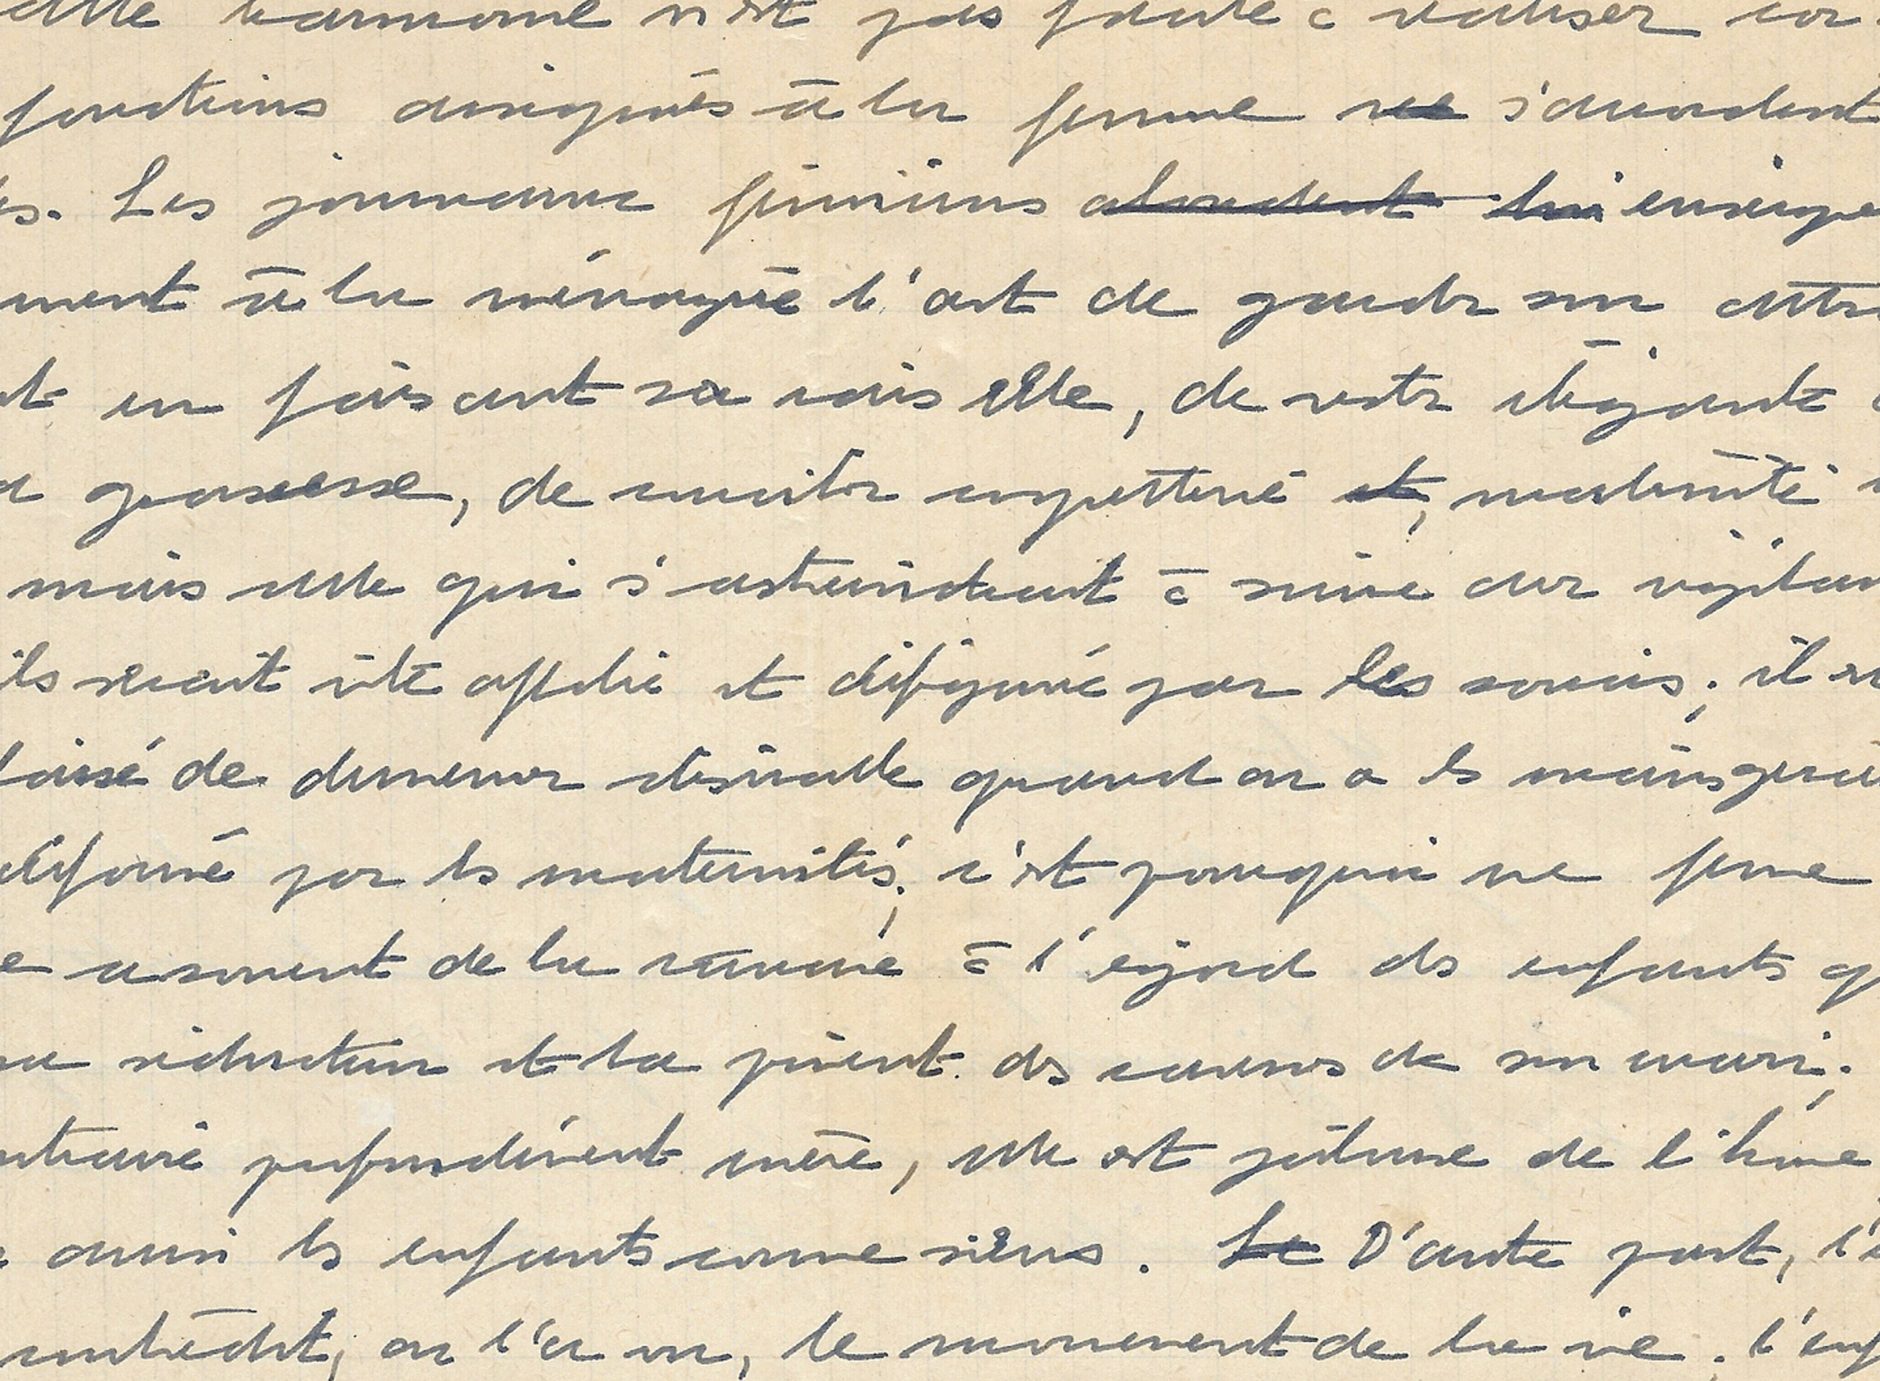 cette harmonie n'est pas facile à réaliser car
fonctions assignées à la femme ne s'accordent
es. Les journaux féminins abondent lui enseigne
ment à la ménagère l'art de garder son attr
t en faisant sa vaisselle, de rester élégante
a grossesse, de concilier coquetterie et, maternité
mais celle qui s'astreindrait à suivre avec vigilan
ils serait vite affolée et défigurée par les soucis; il
laisé de demeurer désirable quand on a les mains gercé
déformé par les maternités; c'est pourquoi une femme
e a souvent de la rancune à l'égard des enfants q
sa séduction et la privent des caresses de son mari;
ntraire profondément mère, elle est jalouse de l'homme
aussi les enfants comme siens. Le D'autre part, l'
contredit, on l'a vu, le mouvement de la vie. l'enf